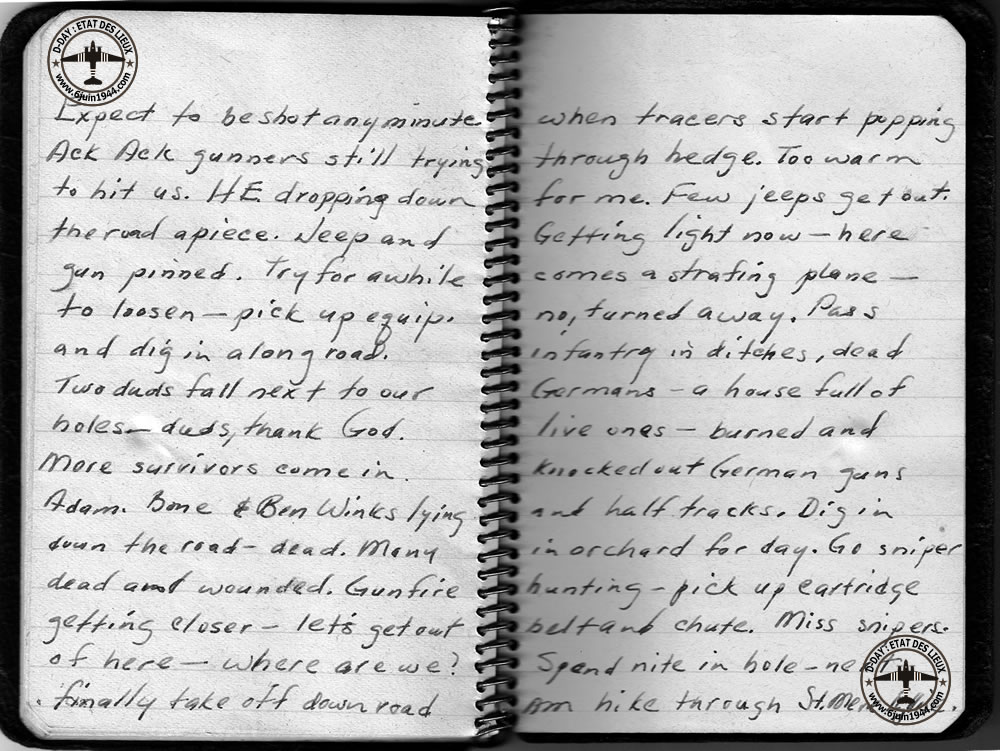 D-DAY : ETAT DES LIEUX
www.6juin1944.com
Expect to be shot any minute.
Ack Ack gunners still trying
to hit us. HE dropping down
the road apiece. Jeep and
gun pinned. Try for awhile
to loosen — pick up equip.
and dig in along road.
Two duds fall next to our
holes — duds, thank God.
More survivors come in.
Adam. Bone & Ben Winks lying
down the road - dead. Many
dead and wounded. Gunfire
getting closer — let's get out
of here — where are we?
finally take off down road
when tracers start popping
through hedge. Too warm
for me. Few jeeps get out.
Getting light now — here
comes a strafing plane —
no, turned away. Pass
infantry in ditches, dead
Germans - a house full of
live ones - burned and
knocked out German guns
and half tracks. Dig in
in orchard for day. Go sniper
hunting - pick up cartridge
belt and chute. Miss snipers.
Spend nite in hole -
am hike through
D-DAY : ETAT DES LIEUX
www.6juin1944.com